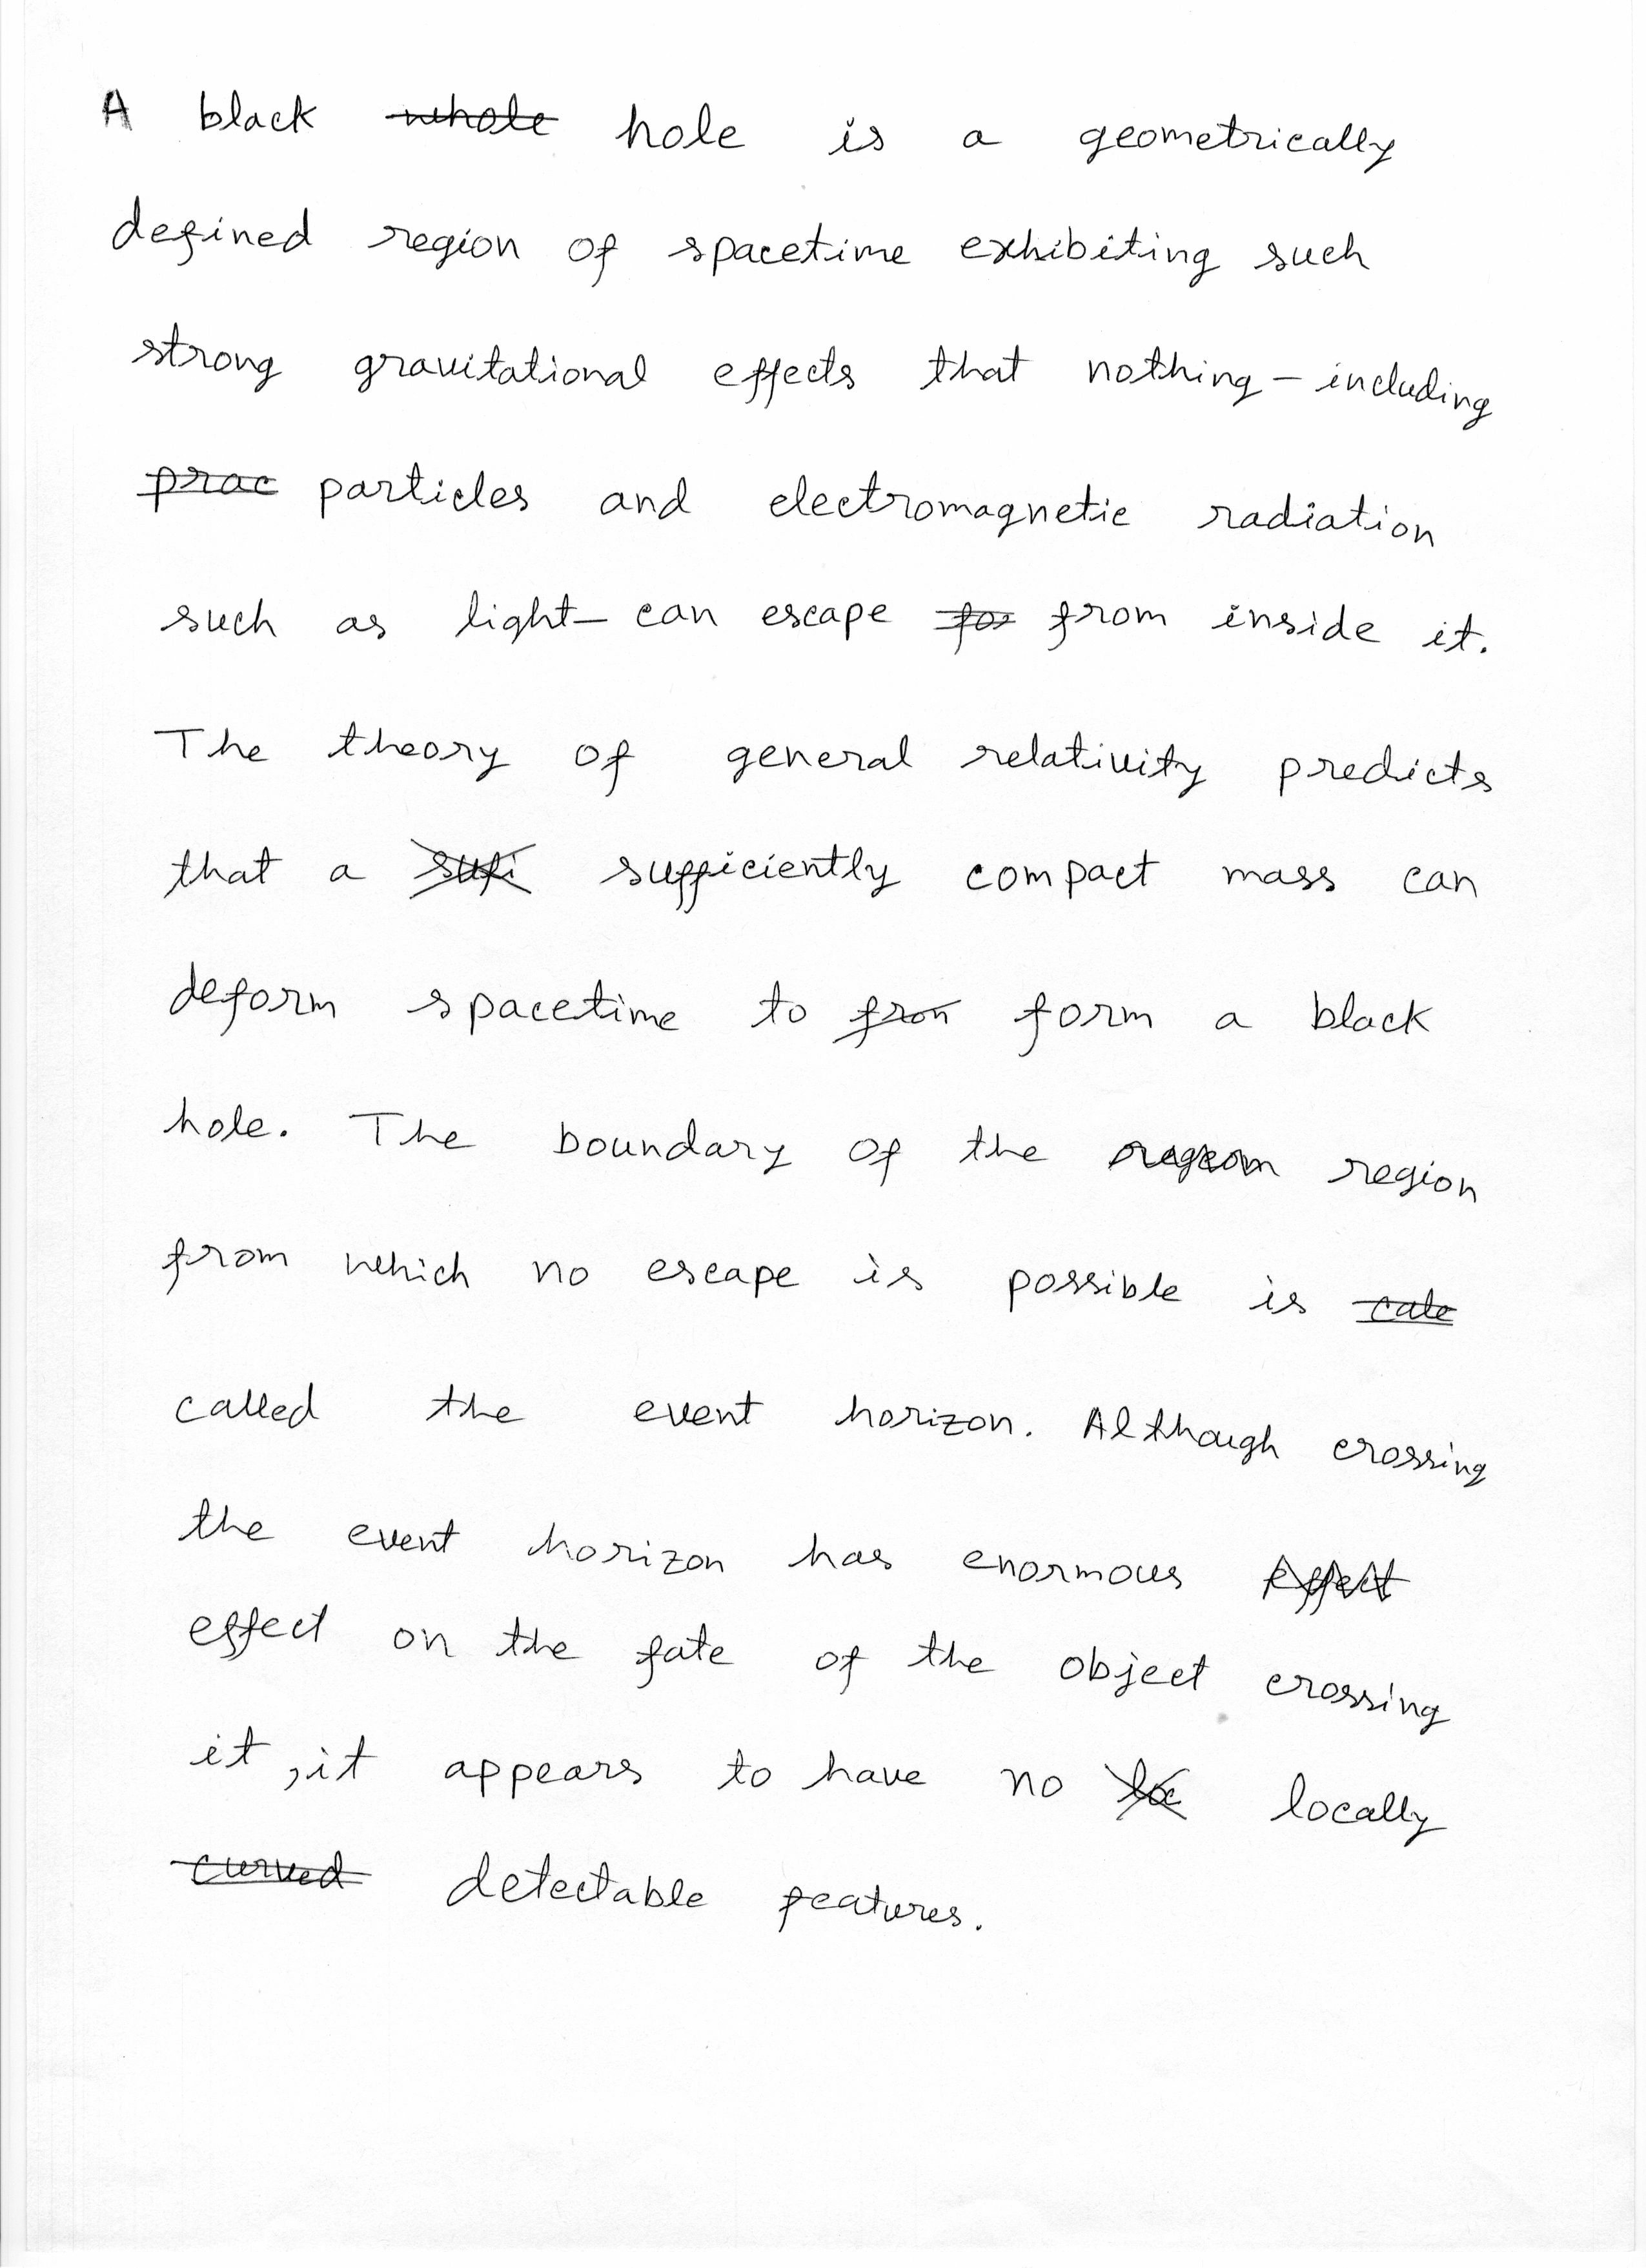 A black whole hole is a geometrically
defined region of spacetime exhibiting such
strong gravitational effects that nothing - including
prac particles and electromagnetic radiation
such as light- can escape for from inside it.
The theory of general relativity predicts
that a sufi sufficiently compact mass can
deform spacetime to fron form a black
hole. The boundary of the region
from which no escape is possible is cale
called the event horizon. Although crossing
the event horizon has enormous effect
effect on the fate of the object crossing
it, it appears to have no loc locally
curved detectable features.